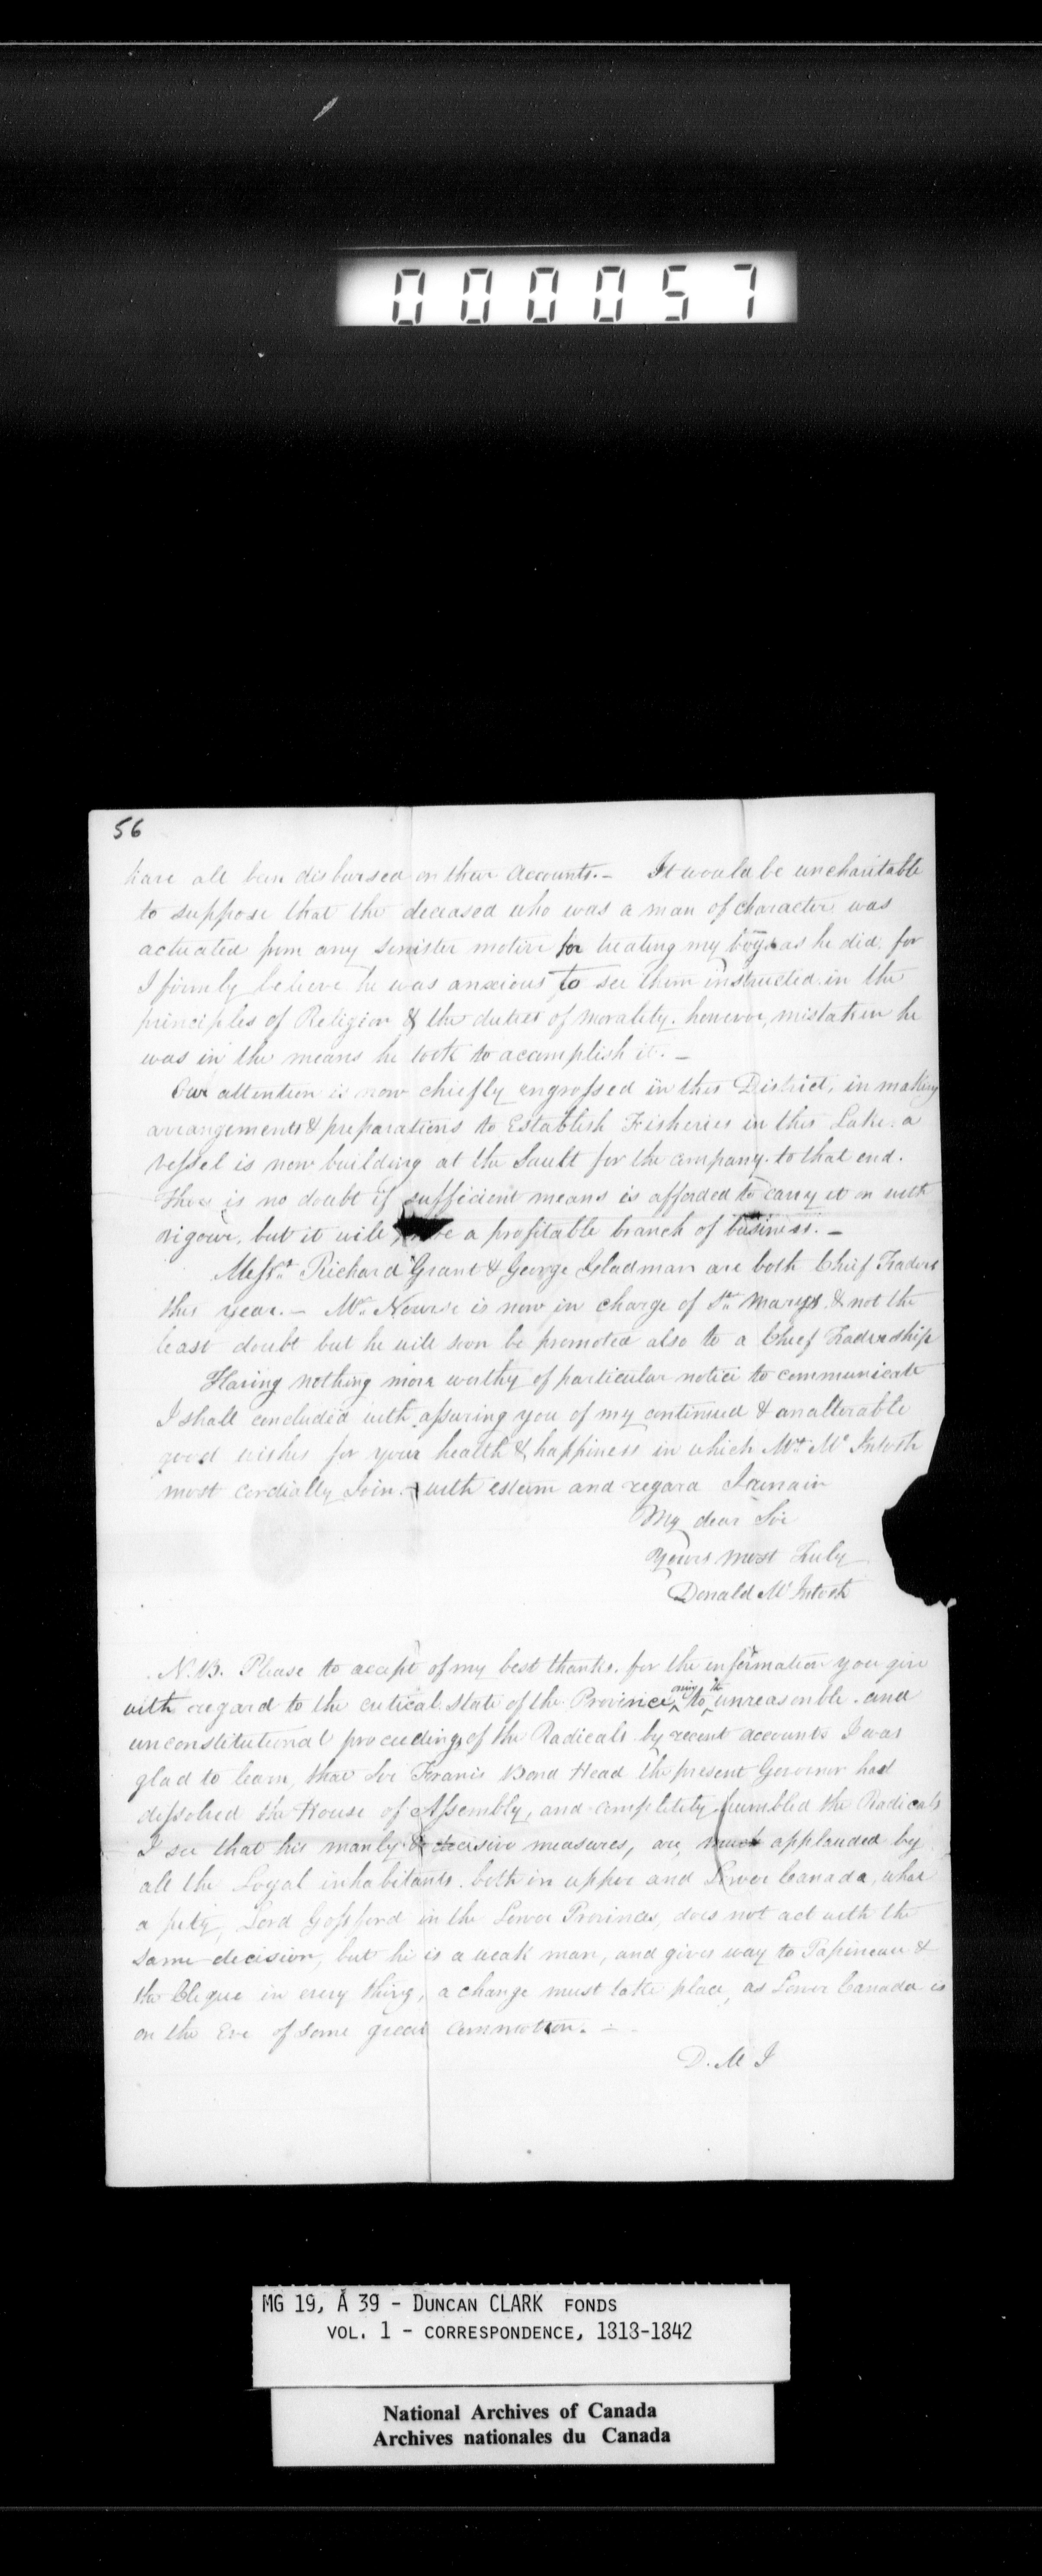 000057
56
have all been disbursed on their accounts. — It would be uncharitable
to suppose that the deceased who was a man of character was
actuated from any sinister motive for treating my boys as he did. for
I firmly believe he was anxious to see them instructed in the
principles of Religion & the duties of morality. however, mistaken he
was in the means he took to acomplish it. —
Our attention is now chiefly engrossed in this District, in making
arrangements & preparations to Establish Fisheries in this Lake. a
vessel is now building at the Sault for the company. to that end.
there is no doubt if sufficient means is afforded to carry it on with
vigour, but it will a profitable branch of business. —
Messrs. Richard Grant & George Gladman are both Chief Traders
this year. — Mr. Nourse is now in charge of St. Marys & not the
least doubt but he will soon be promoted also to a Chief Tradership
Having nothing more worthy of particular notice to communicate
I shall concluded with assuring you of my continued & unalterable
good wishes for your health & happiness in which Mrs. Mc Intosh
most cordially Join. with esteem and regard I remain
My dear Sir
Yours most Truly
Donald Mc Intosh
N.B. Please to accept of my best thanks. for the information you give
with regard to the critical state of the Province, owing to the unreasonble. and
unconstitutional proceedings of the Radicals by recent accounts I was
glad to learn, that Sir Francis Bond Head the present Governor had
dissolved the House of Assembly, and completely humbled the Radicals
I see that his manly & decisive measures, are, much applauded by
all the Loyal inhabitants both in upper and Lower Canada, what
a pity, Lord Gossford in the Lower Provinces, does not act with the
same decision, but he is a weak man, and gives way to Papineau &
the Clique in every thing, a change must take place, as Lower Canada is
on the Eve of some great commotion. —
D. M I
MG 19, A 39 - DUNCAN CLARK FONDS
VOL. 1 - CORRESPONDENCE, 1813-1842
National Archives of Canada
Archives nationales du Canada